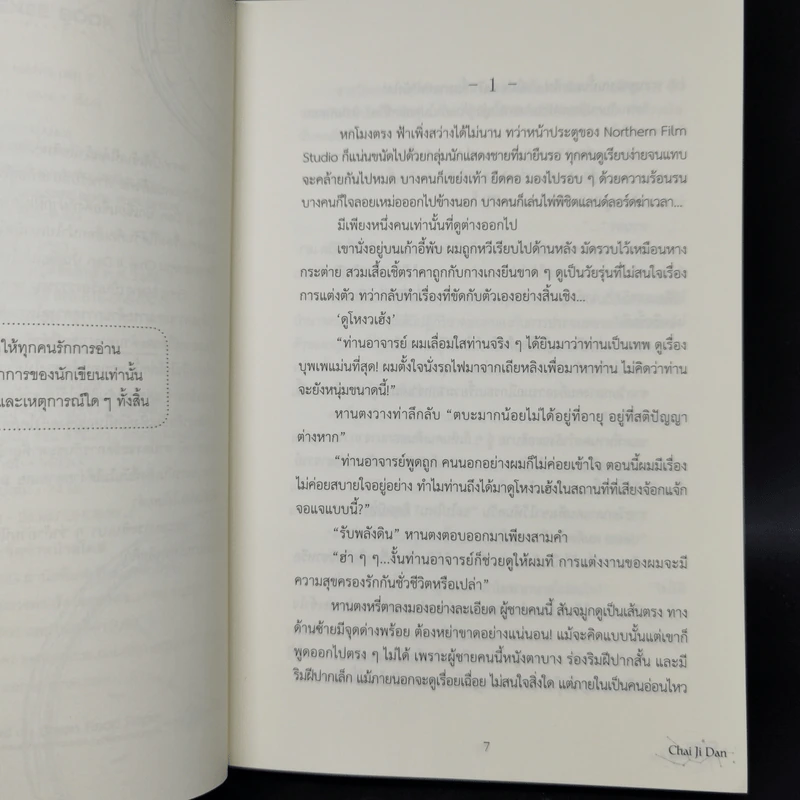 ให้ทุกคนรักการอ่าน
การของนักเขียนเท่านั้น
และเหตุการณ์ใด ๆ ทั้งสิ้น
- 1 -
หกโมงตรง ฟ้าเพิ่งสว่างได้ไม่นาน ทว่าหน้าประตูของ Northern Film
Studio ก็แน่นขนัดไปด้วยกลุ่มนักแสดงชายที่มายืนรอ ทุกคนดูเรียบง่ายจนแทบ
จะคล้ายกันไปหมด บางคนก็เขย่งเท้า ยืดคอ มองไปรอบ ๆ ด้วยความร้อนรน
บางคนก็ใจลอยเหม่อออกไปข้างนอก บางคนก็เล่นไพ่พิชิตแลนด์ลอร์ดฆ่าเวลา...
มีเพียงหนึ่งคนเท่านั้นที่ดูต่างออกไป
เขานั่งอยู่บนเก้าอี้พับ ผมถูกหวีเรียบไปด้านหลัง มัดรวบไว้เหมือนหาง
กระต่าย สวมเสื้อเชิ้ตราคาถูกกับกางเกงยีนขาด ๆ ดูเป็นวัยรุ่นที่ไม่สนใจเรื่อง
การแต่งตัว ทว่ากลับทำเรื่องที่ขัดกับตัวเองอย่างสิ้นเชิง...
‘ดูโหงวเฮ้ง’
“ท่านอาจารย์ ผมเลื่อมใสท่านจริง ๆ ได้ยินมาว่าท่านเป็นเทพ ดูเรื่อง
บุพเพแม่นที่สุด! ผมตั้งใจนั่งรถไฟมาจากเถียหลิงเพื่อมาหาท่าน ไม่คิดว่าท่าน
จะยังหนุ่มขนาดนี้!”
หานตงวางท่าลึกลับ “ตบะมากน้อยไม่ได้อยู่ที่อายุ อยู่ที่สติปัญญา
ต่างหาก”
“ท่านอาจารย์พูดถูก คนนอกอย่างผมก็ไม่ค่อยเข้าใจ ตอนนี้ผมมีเรื่อง
ไม่ค่อยสบายใจอยู่อย่าง ทำไมท่านถึงได้มาดูโหงวเฮ้งในสถานที่ที่เสียงจ้อกแจ้ก
จอแจแบบนี้?”
“รับพลังดิน” หานตงตอบออกมาเพียงสามคำ
“ฮ่า ๆ ๆ...งั้นท่านอาจารย์ก็ช่วยดูให้ผมที การแต่งงานของผมจะมี
ความสุขครองรักกันชั่วชีวิตหรือเปล่า”
หานตงหรี่ตาลงมองอย่างละเอียด ผู้ชายคนนี้ สันจมูกดูเป็นเส้นตรง ทาง
ด้านซ้ายมีจุดด่างพร้อย ต้องหย่าขาดอย่างแน่นอน! แม้จะคิดแบบนั้นแต่เขาก็
พูดออกไปตรง ๆ ไม่ได้ เพราะผู้ชายคนนี้หนังตาบาง ร่องริมฝีปากสั้น และมี
ริมฝีปากเล็ก แม้ภายนอกจะดูเรื่อยเฉื่อย ไม่สนใจสิ่งใด แต่ภายในเป็นคนอ่อนไหว
7
Chai Ji Dan